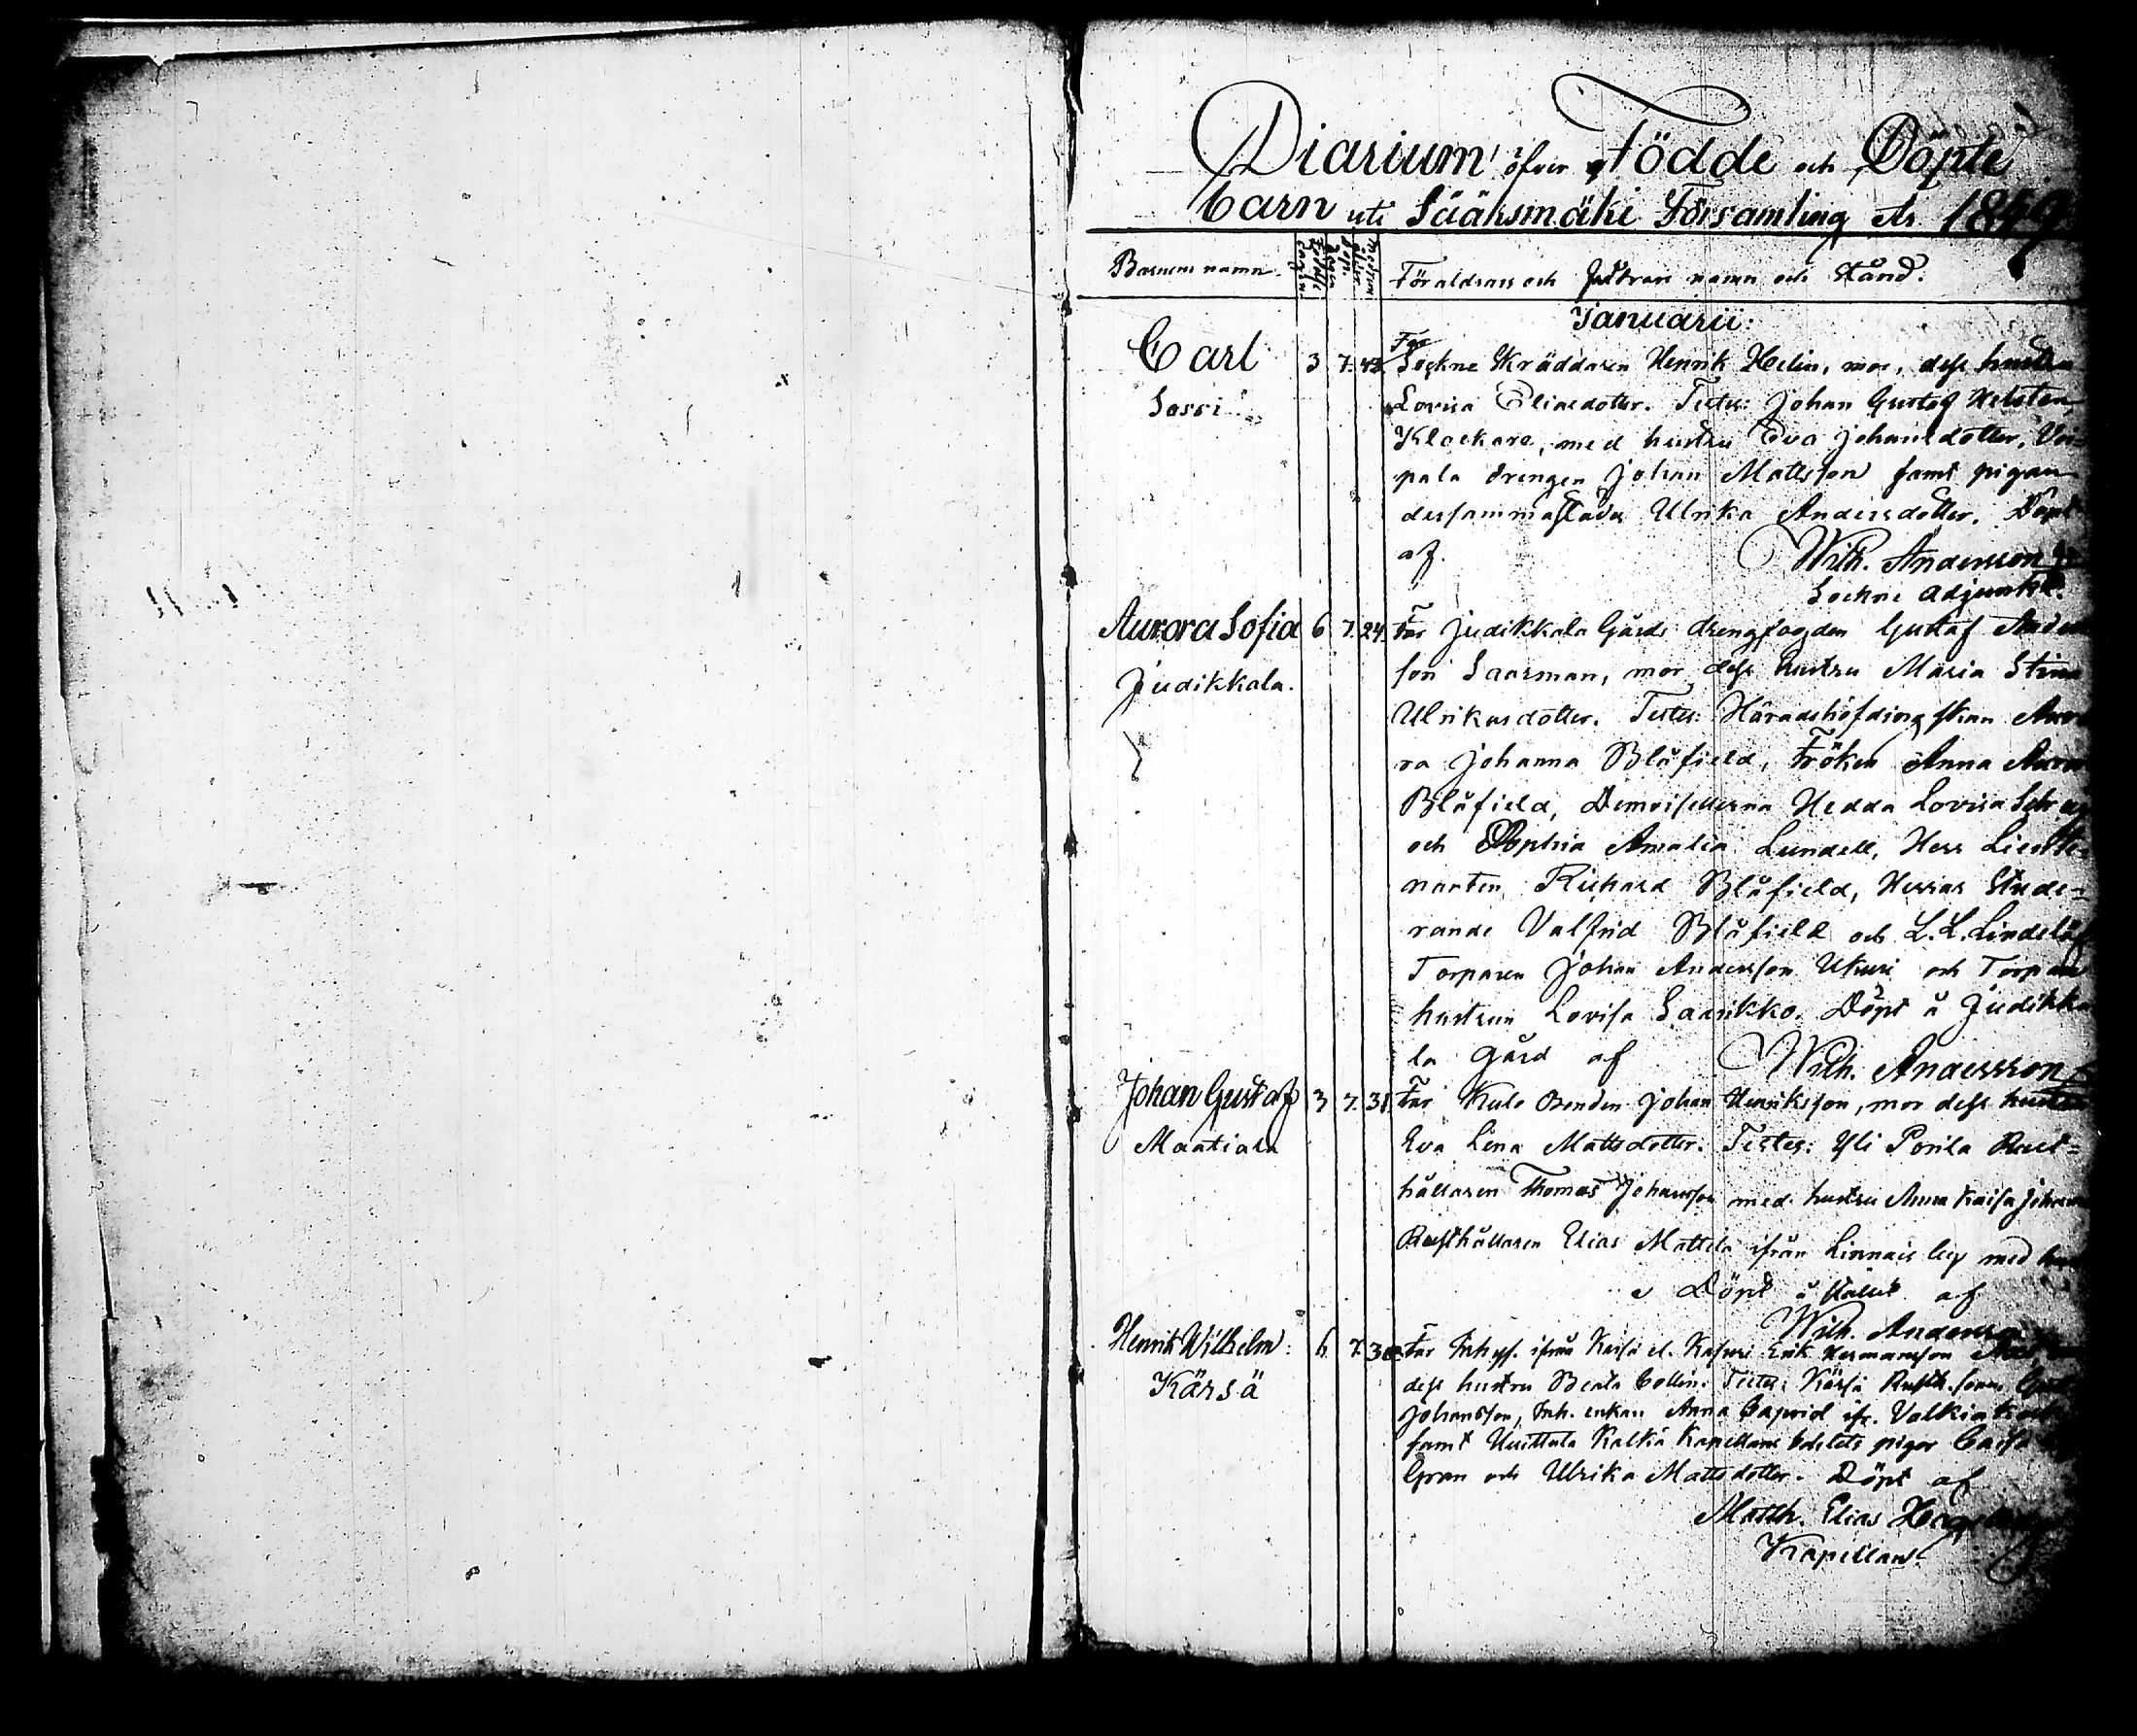 Diarium öfver Födde och Döpte
barn uti Sääksmäki Församling År 1849
Barnens namn. Föräldrars och faddrars namn och stånd.
Januarii:
Carl 3 7. 42 Far Sockne Skräddaren Henrik Helin, mor, dess hustru
Sassi Lovisa Eliaedotter. Testes: Johan Gustaf Helsten
Klockare, med hustru Eva Johansdotter, Voi=
pala drengen Johan Mattsson samt pigan
dersammastädes Ulrika Andersdotter. Döpt
af. Wilh. Andersson
Sockne Adjunkt.
Aurora Sofia 6 7. 24. Far Judikkala Gårds drengfogden Gustaf Anders
son Saarman, mor dess hustru Maria Stina
Judikkala.
Ulrikusdotter. Testes: Häradshöfdingskan Auro
ra Johanna Blåfield, Fröken Anna Aurora
Blåfield, Demoisellerna Hedda Lovisa
och Sophia Amalia Lundell, Herr Lieute=
nanten Richard Blåfield, Herrar Stude=
rande Valfrid Blåfield och L. L. Lindelöf
Torparen Johan Andersson Ukuri och Torpare
hustrun Lovisa Saarikko. Döpt å Judikka
la gård af Wilh. Andersson
Johan Gustaf 3 7. 31. Far Kulo Bonden Johan Henriksson, mor dess hustru
Maatiala Eva Lena Mattsdotter. Testes: Yli Ponla Rust=
hållaren Thomas Johansson med hustru Anna Kaisa Johans
Rusthållaren Elias Mattila ifrån Linnais by med
Döpt å stället af
Wilh. Andersson
Henrik Wilhelm: 6. 7. Far Inhys. ifrån Erik Hermansson
Kärsä dess hustru Beata Collin. Testes: Kärsä Rusth. sonen
Johansson, Inh. enkan Anna ifr. Valkiakoski
samt Huittula Kalkå Kapellans bolets pigor Caisa
Gran och Ulrika Mattsdotter. Döpt af
Matth. Elias
Kapellan.